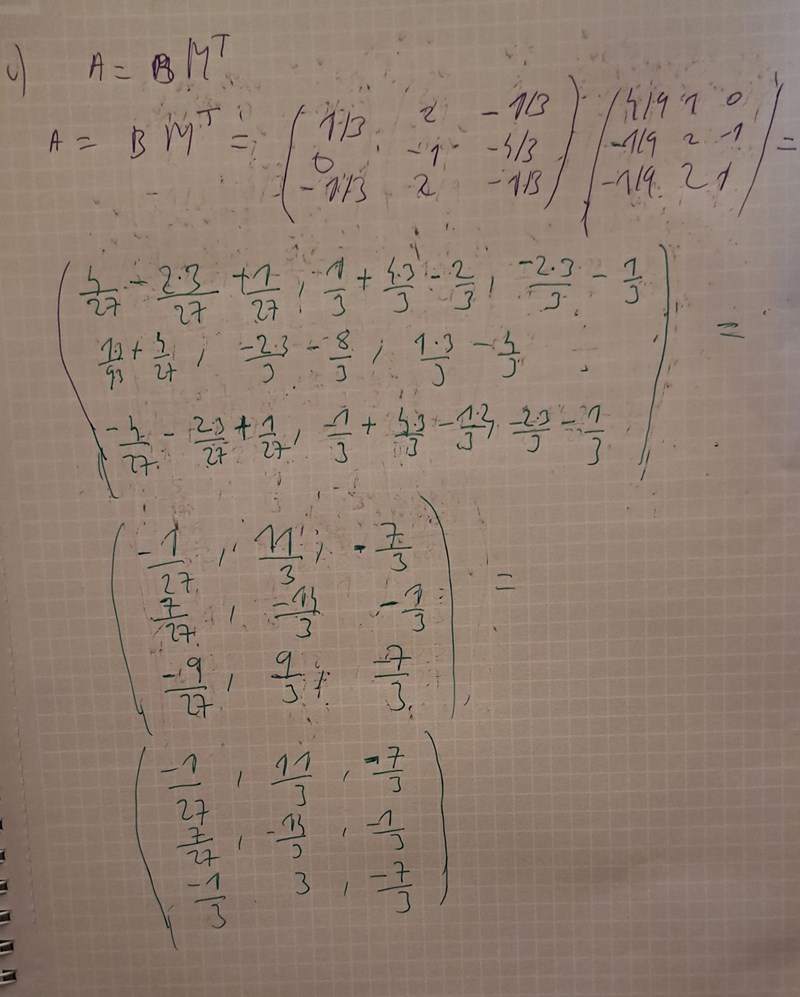 c) A = B M^T
A = B M^T = (1/3 2 -1/3) (4/9 1 0) =
(0 -1 -4/3) (-1/9 2 -1)
(-1/3 2 -1/3) (-1/9 2 1)
(4/27 - 2·3/27 + 1/27, 1/3 + 4·3/3 - 2/3, -2·3/3 - 1/3) =
+ 4/27, -2·3/3 - 8/3, 1·3/3 - 4/3
-4/27 - 2·3/27 + 1/27, -1/3 + 4·3/3 - 1·2/3, -2·3/3 - 1/3
(-1/27, 11/3, -7/3) =
7/27, -14/3 -1/3
-9/27, 9/3, -7/3
(-1/27, 11/3, -7/3)
7/27, -14/3, -1/3
-1/3 3, -7/3